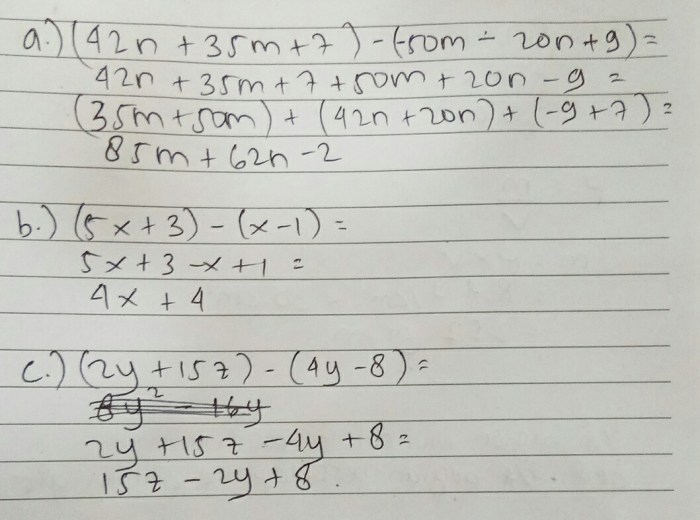 a.) (42n + 35m + 7) - (-50m - 20n + 9) =
42n + 35m + 7 + 50m + 20n - 9 =
(35m + 50m) + (42n + 20n) + (-9 + 7) =
85m + 62n - 2
b.) (5x + 3) - (x - 1) =
5x + 3 - x + 1 =
4x + 4
c.) (2y + 15z) - (4y - 8) =
8y² - 16y
2y + 15z - 4y + 8 =
15z - 2y + 8.